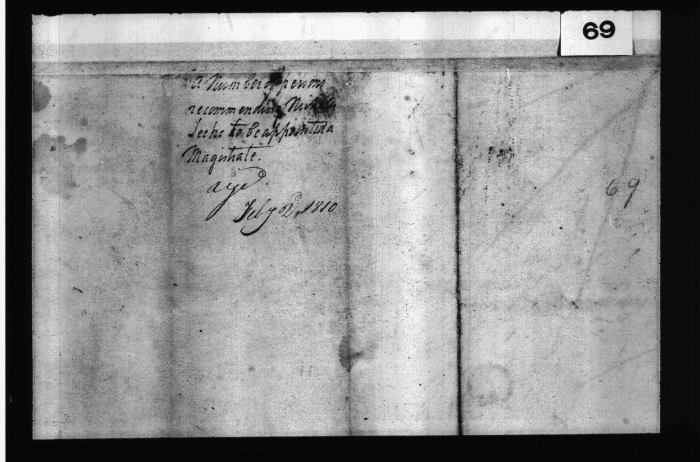 69
A Number of persons
recommending
to be appointed a
Magistrate.
Feby 2, 1810
69